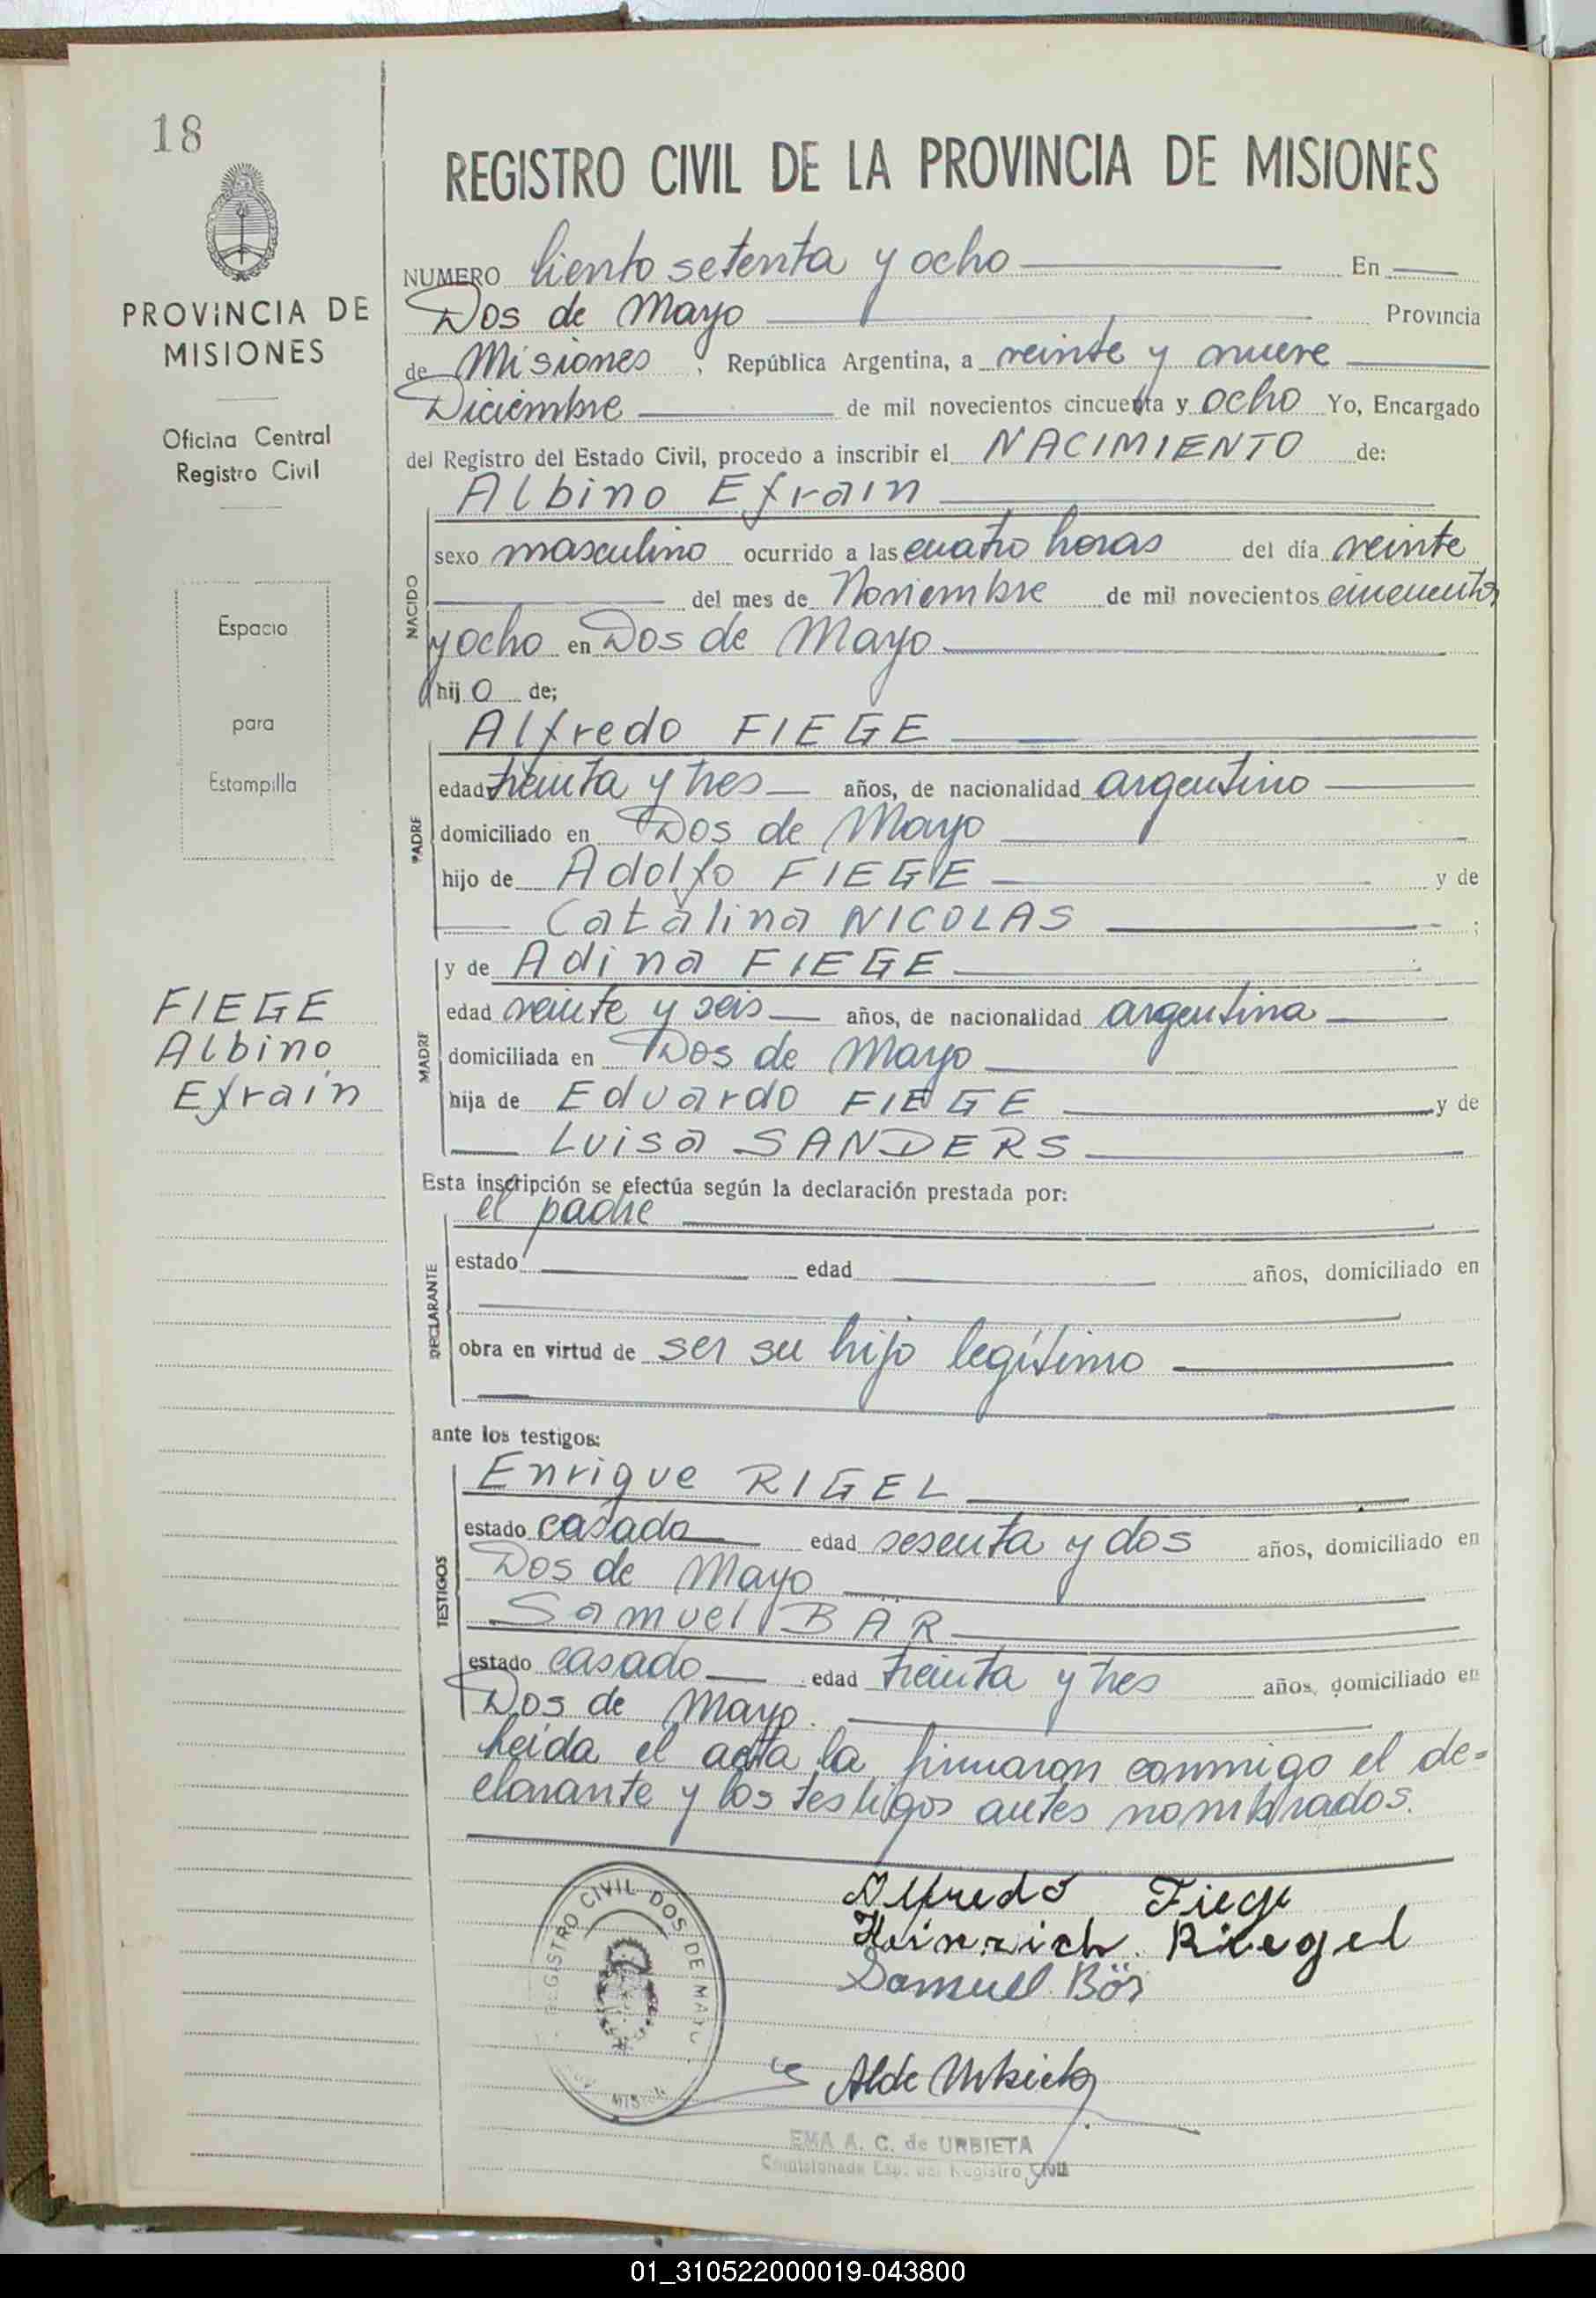 18
REGISTRO CIVIL DE LA PROVINCIA DE MISIONES
PROVINCIA DE
MISIONES
Oficina Central
Registro Civil
Espacio
para
Estampilla
FIEGE
Albino
Efraín
NUMERO Ciento setenta y ocho En
Dos de Mayo Provincia
de Misiones, República Argentina, a veinte y nueve
Diciembre de mil novecientos cincuenta y ocho Yo, Encargado
del Registro del Estado Civil, procedo a inscribir el NACIMIENTO de:
Albino Efrain
NACIDO
sexo masculino ocurrido a las cuatro horas del día veinte
del mes de Noviembre de mil novecientos cincuenta
y ocho en Dos de Mayo
hijo de;
Alfredo FIEGE
PADRE
edad treinta y tres años, de nacionalidad argentino
domiciliado en Dos de Mayo
hijo de Adolfo FIEGE y de
Catalina NICOLAS ;
y de Adina FIEGE
MADRE
edad veinte y seis años, de nacionalidad argentina
domiciliada en Dos de Mayo
hija de Eduardo FIEGE y de
Luisa SANDERS
Esta inscripción se efectúa según la declaración prestada por:
el padre
DECLARANTE
estado edad años, domiciliado en
obra en virtud de ser su hijo legítimo
ante los testigos:
Enrique RIGEL
TESTIGOS
estado casado edad sesenta y dos años, domiciliado en
Dos de Mayo
Samuel BÄR
estado casado edad treinta y tres años, domiciliado en
Dos de Mayo.
Leída el acta la firmaron conmigo el de=
clarante y los testigos antes nombrados.
Alfredo Fiege
Heinrich Riegel
Samuel Bär
REGISTRO CIVIL DOS DE MAYO
EMA A. C. de URBIETA
Comisionada Esp. del Registro Civil
01_310522000019-043800